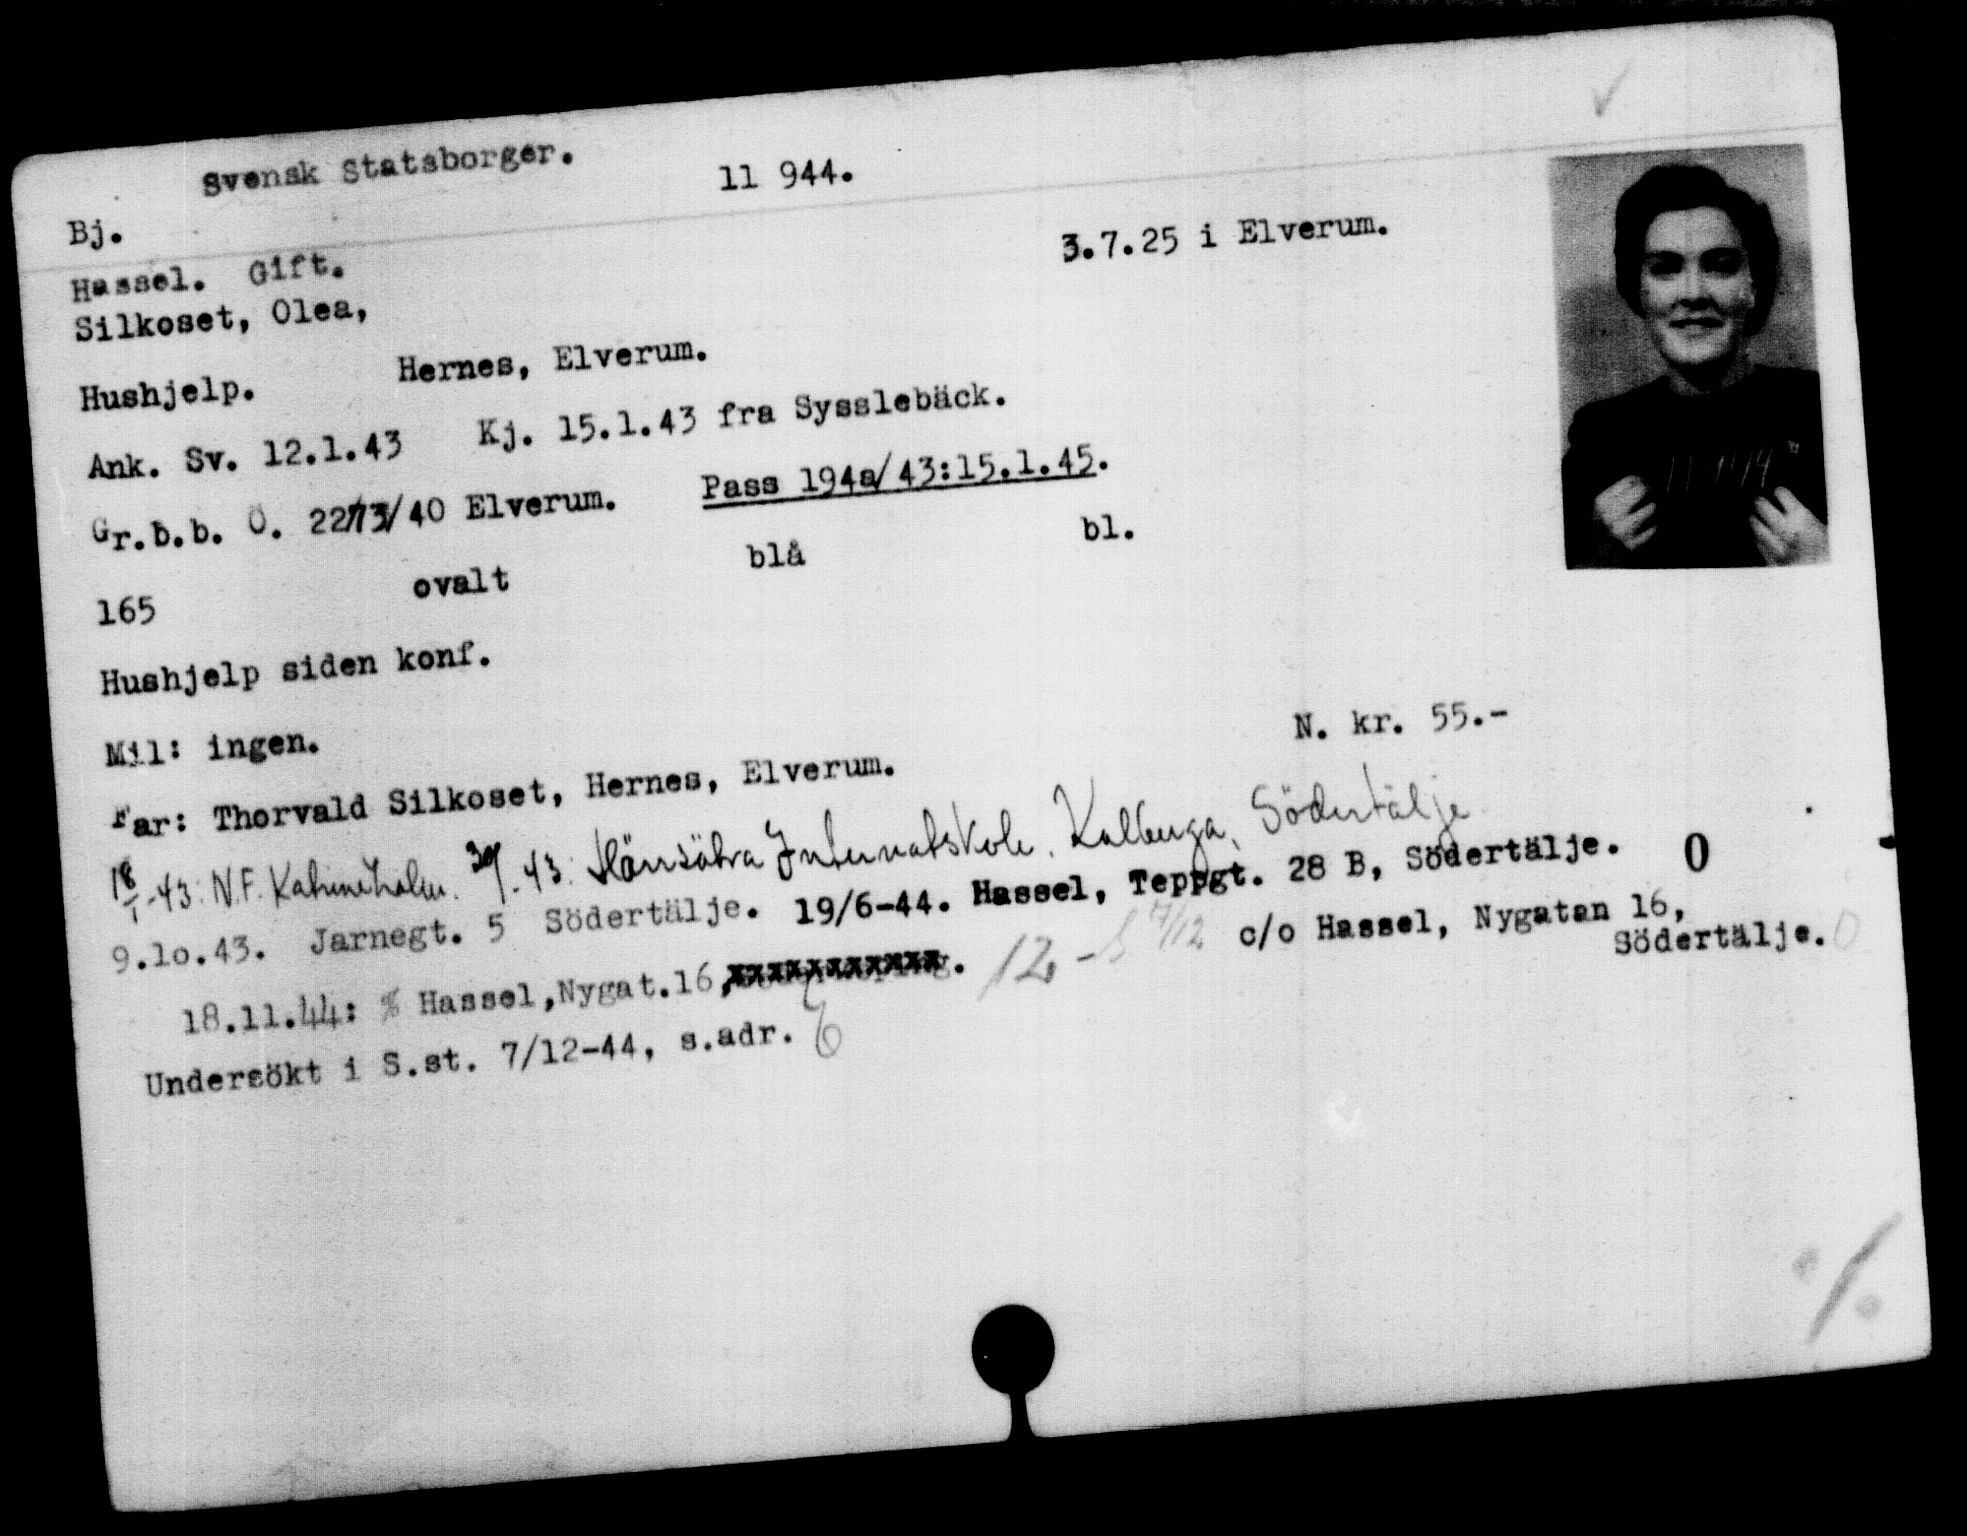 Svensk Statsborger.
11 944.
Bj.
Hassel. Gift.
3.7.25 i Elverum.
Silkoset, Olea,
Hushjelp. Hernes, Elverum.
Ank. Sv. 12.1.43 Kj. 15.1.43 fra Sysslebäck.
Gr.b.b. Ö. 2273/40 Elverum. Pass 194a/43:15.1.45.
165 ovalt blå bl.
Hushjelp siden konf.
Mil: ingen. N. kr. 55.-
Far: Thorvald Silkoset, Hernes, Elverum.
18/1-43: N.F. Katrineholm. -43: Internatskole, Södertälje
9.10.43. Jarnegt. 5 Södertälje. 19/6-44. Hassel, Teppgt. 28 B, Södertälje. O
18.11.44: % Hassel,Nygat.16, 12,- 7/12 c/o Hassel, Nygatan 16,
Södertälje.
Undersökt i S.st. 7/12-44, s.adr.